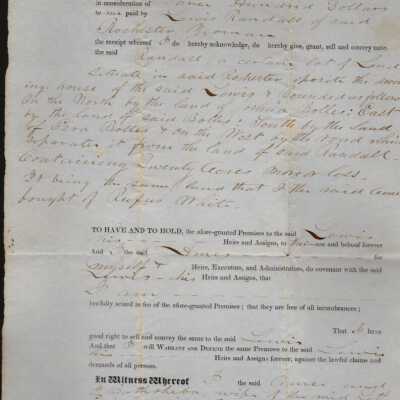 in consideration of Hundred Dollars
to me paid by Lewis Randall of said
Rochester Yeoman
the receipt whereof I do hereby acknowledge, do hereby give, grant, sell and convey unto
the said Randall a certain lot of Land
Situate in said Rochester opposite the dwell
ing house of the said Lewis & bounded as follows
On the North by the land of Bolles: East
by the land of said Bolles: South by the Land
of Bolles & on the West by the road which
Separates it from the land of said Randall.
Containing Twenty Acres more or less.
It being the same land that I the said
bought of Rufus Waite.
TO HAVE AND TO HOLD, the afore-granted Premises to the said Lewis
his Heirs and Assigns, to use and behoof forever
And I the said for
myself & Heirs, Executors, and Administrators, do covenant with the said
Lewis his Heirs and Assigns, that
I am
lawfully seized in fee of the afore-granted Premises; that they are free of all incumbrances;
That I have
good right to sell and convey the same to the said Lewis
And that I will WARRANT AND DEFEND the same Premises to the said Lewis
his Heirs and Assigns forever, against the lawful claims and
demands of all persons.
In Witness Whereof I the said
wife of